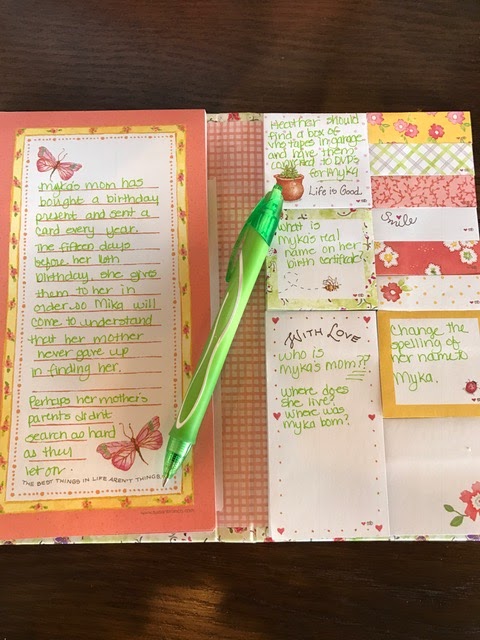 Myka's mom has
bought a birthday
present and sent a
card every year.
The fifteen days
before her 16th
birthday, she gives
them to her in
order so Mika will
come to understand
that her mother
never gave up
in finding her.
Perhaps her mother's
parents didn't
search as hard
as they
let on.
THE BEST THINGS IN LIFE AREN'T THINGS.
Heather should
find a box of
VHS tapes in garage
and have them
converted to DVDs
for Myka
Life is Good
What is
Myka's real
name on her
birth certificate?
Smile
WITH LOVE
who is
Myka's mom??
where does
she live?
where was
Myka born?
Change the
spelling of
her name to
Myka.